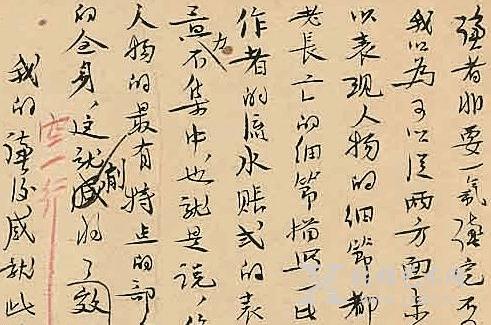 讀者非要一氣讀完不
我以为可以從两方面来
以表现人物的细节都
老長亡的细节描写一比
作者的流水账式的表
力量不集中，也就是说，
人物的最有特点的部
的全身，这就削弱了效
空一行
我的读後感就此